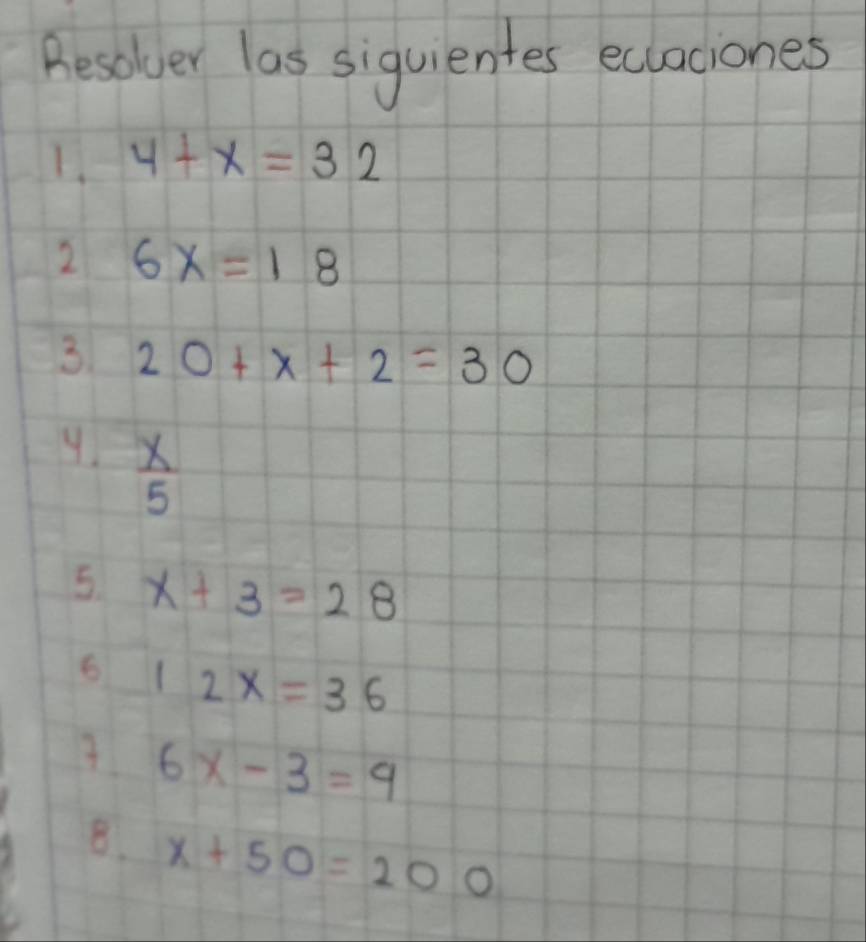 Resolver las siguientes ecuaciones
1. 4 + x = 32
2 6x = 18
3. 20 + x + 2 = 30
4. x/5
5. x + 3 = 28
6 12x = 36
7. 6x - 3 = 9
8. x + 50 = 200